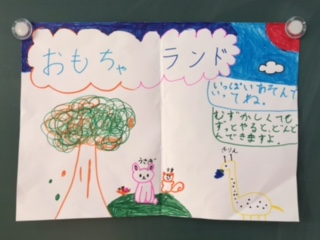 おもちゃランド
いっぱいあそんで
いってね。
むずかしくても
ずっとやると、どんど
んできますよ。
うさぎ
きりん